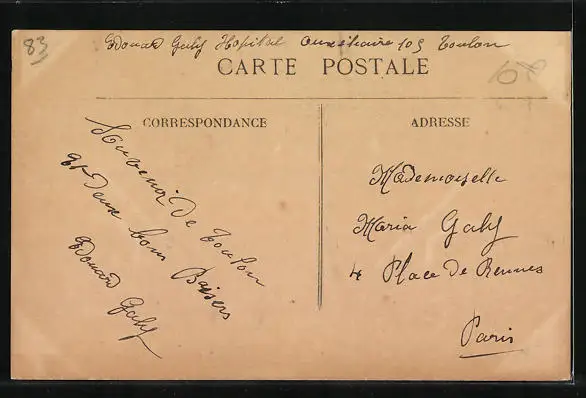 83
Edouard Galy Hopital Auxiliaire 105 Toulon
CARTE POSTALE
CORRESPONDANCE
Souvenir de Toulon
et Deux bons Baisers
Edouard Galy
ADRESSE
Mademoiselle
Maria Galy
4 Place de Rennes
Paris